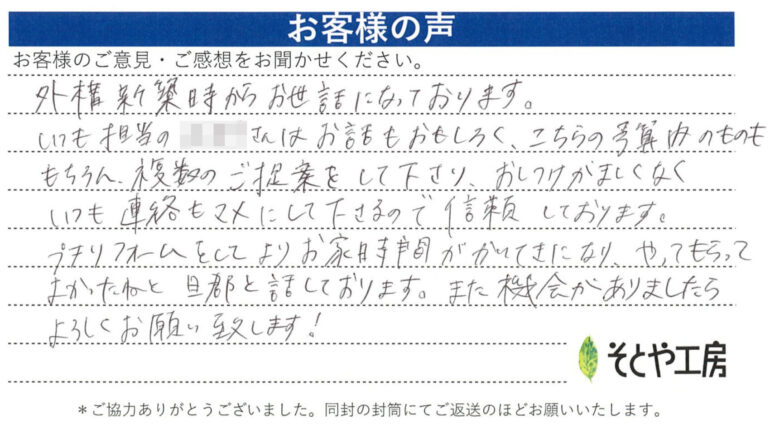 お客様の声
お客様のご意見・ご感想をお聞かせください。
外構新築時からお世話になっております。
いつも担当の さんはお話もおもしろく、こちらの予算内のものも
もちろん、複数のご提案をして下さり、おしつけがましくなく
いつも連絡もマメにして下さるので信頼しております。
プチリフォームをしてよりお家時間がかいてきになり、やってもらって
よかったねと旦那と話しております。また機会がありましたら
よろしくお願い致します!
そとや工房
*ご協力ありがとうございました。同封の封筒にてご返送のほどお願いいたします。